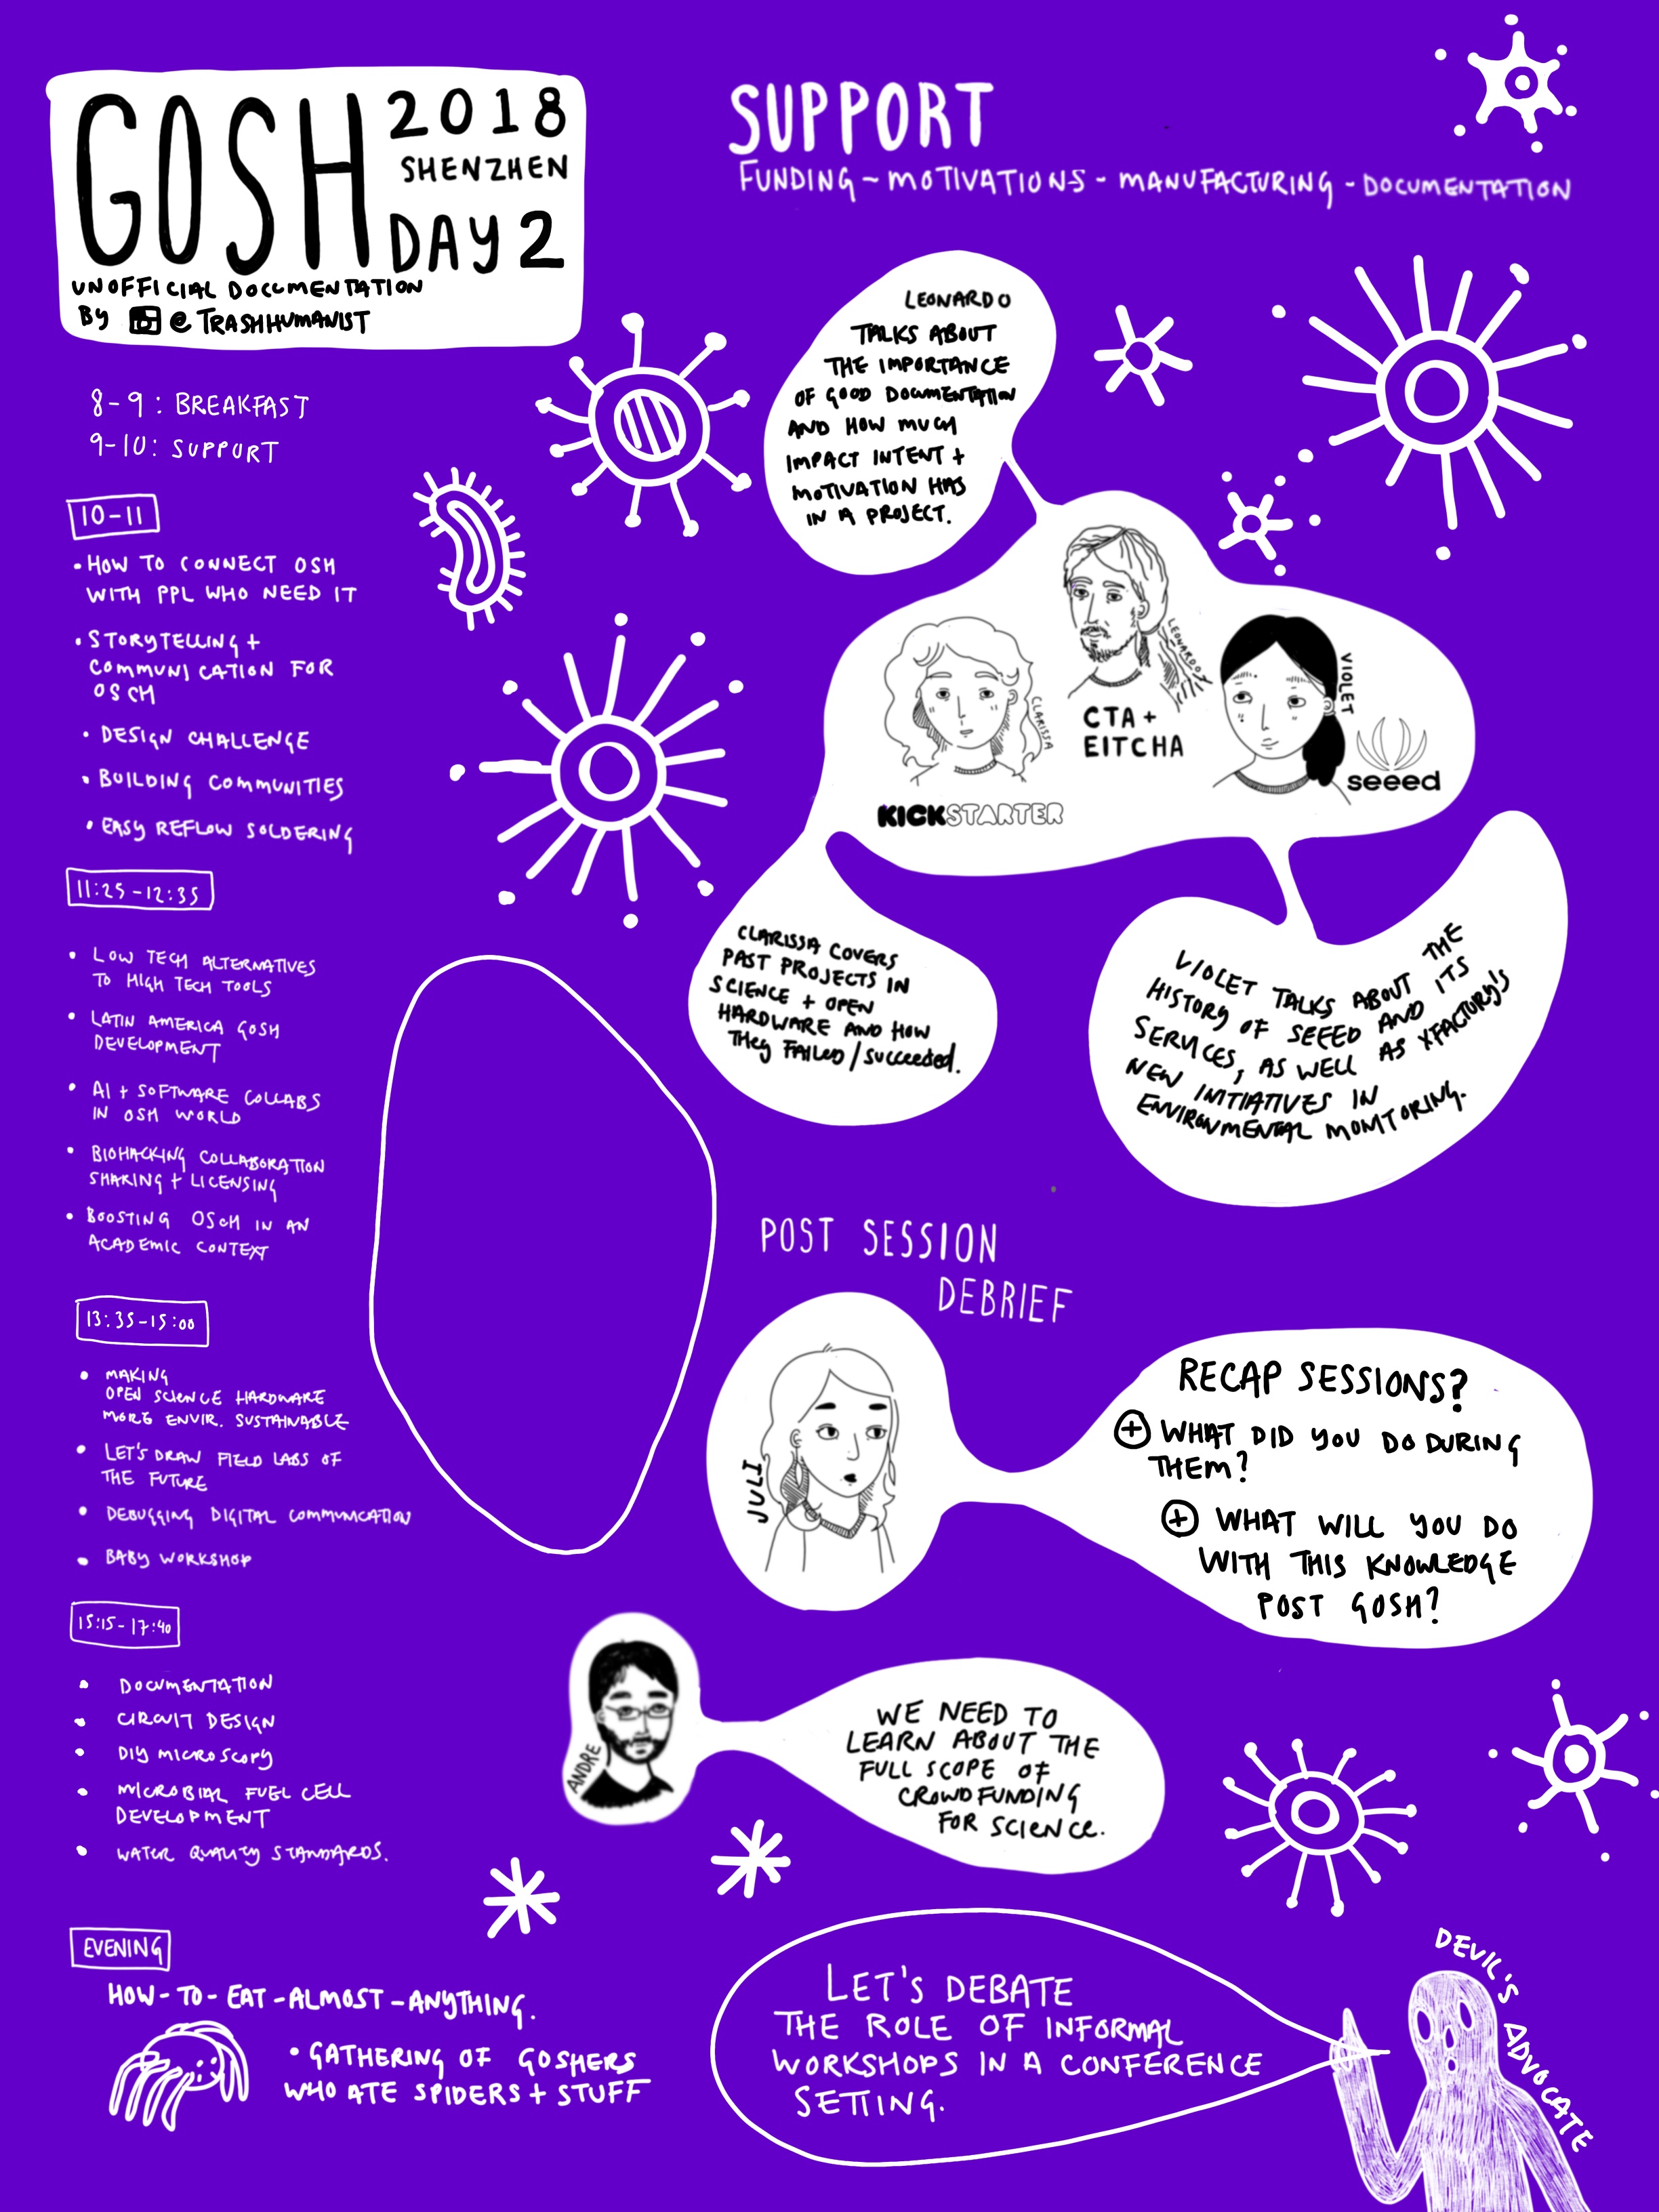 GOSH 2018
SHENZHEN
DAY 2
UNOFFICIAL DOCUMENTATION
BY @TRASHHUMANIST
8-9: BREAKFAST
9-10: SUPPORT
10-11
• HOW TO CONNECT OSH
WITH PPL WHO NEED IT
• STORYTELLING +
COMMUNICATION FOR
OSCH
• DESIGN CHALLENGE
• BUILDING COMMUNITIES
• EASY REFLOW SOLDERING
11:25-12:35
• LOW TECH ALTERNATIVES
TO HIGH TECH TOOLS
• LATIN AMERICA GOSH
DEVELOPMENT
• AI + SOFTWARE COLLABS
IN OSH WORLD
• BIOHACKING COLLABORATION
SHARING + LICENSING
• BOOSTING OSCH IN AN
ACADEMIC CONTEXT
13:35-15:00
• MAKING
OPEN SCIENCE HARDWARE
MORE ENVIR. SUSTAINABLE
• LET'S DRAW FIELD LABS OF
THE FUTURE
• DEBUGGING DIGITAL COMMUNICATION
• BABY WORKSHOP
15:15-17:40
• DOCUMENTATION
• CIRCUIT DESIGN
• DIY MICROSCOPY
• MICROBIAL FUEL CELL
DEVELOPMENT
• WATER QUALITY STANDARDS.
EVENING
HOW-TO-EAT-ALMOST-ANYTHING.
• GATHERING OF GOSHERS
WHO ATE SPIDERS + STUFF
SUPPORT
FUNDING ~ MOTIVATIONS - MANUFACTURING - DOCUMENTATION
LEONARDO
TALKS ABOUT
THE IMPORTANCE
OF GOOD DOCUMENTATION
AND HOW MUCH
IMPACT INTENT +
MOTIVATION HAS
IN A PROJECT.
CLARISSA
KICKSTARTER
LEONARDO
CTA +
EITCHA
VIOLET
seeed
CLARISSA COVERS
PAST PROJECTS IN
SCIENCE + OPEN
HARDWARE AND HOW
THEY FAILED/SUCCEEDED.
VIOLET TALKS ABOUT THE
HISTORY OF SEEED AND ITS
SERVICES, AS WELL AS XFACTORY'S
NEW INITIATIVES IN
ENVIRONMENTAL MONITORING.
POST SESSION
DEBRIEF
JULI
RECAP SESSIONS?
+ WHAT DID YOU DO DURING
THEM?
+ WHAT WILL YOU DO
WITH THIS KNOWLEDGE
POST GOSH?
ANDRE
WE NEED TO
LEARN ABOUT THE
FULL SCOPE OF
CROWDFUNDING
FOR SCIENCE.
LET'S DEBATE
THE ROLE OF INFORMAL
WORKSHOPS IN A CONFERENCE
SETTING.
DEVIL'S ADVOCATE